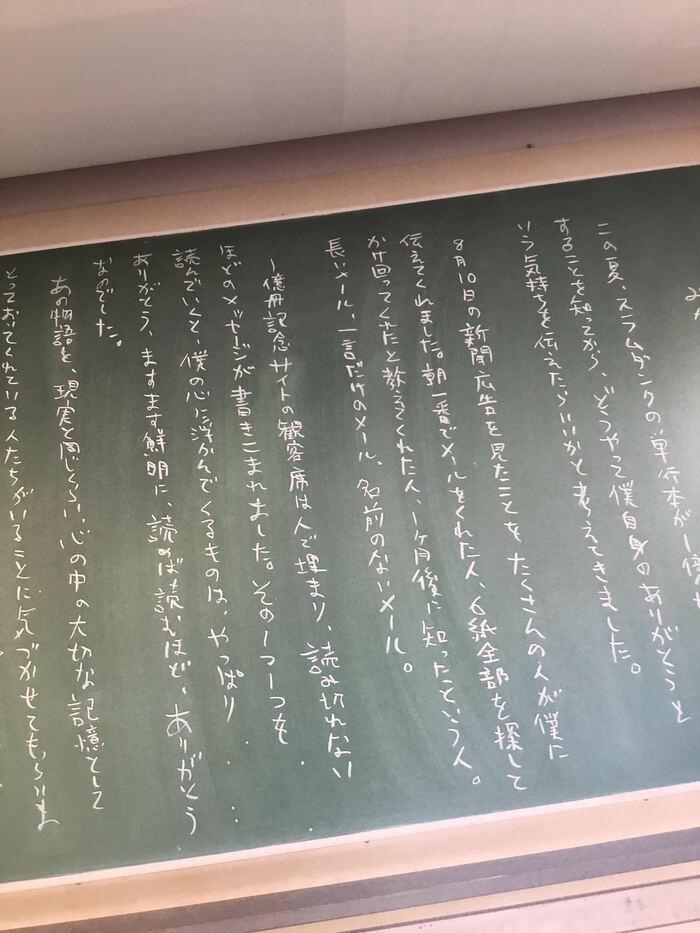 この夏、スラムダンクの単行本が1億
することを知ってから、どうやって僕自身のありがとうと
いう気持ちを伝えたらいいかと考えてきました。
8月10日の新聞広告を見たことをたくさんの人が僕に
伝えてくれました。朝一番でメールをくれた人、6紙全部を探して
かけ回ってくれたと教えてくれた人、1ヶ月後に知ったという人。
長いメール、一言だけのメール、名前のないメール。
1億冊記念サイトの観客席は人で埋まり、読み切れない
ほどのメッセージが書きこまれました。その1つ1つを
読んでいくと、僕の心に浮かんでくるものは、やっぱり
ありがとう、ますます鮮明に、読めば読むほど、ありがとう
なのでした。
あの物語を、現実と同じくらい、心の中の大切な記憶として
とっておいてくれている人たちがいることに気づかせてもらいま